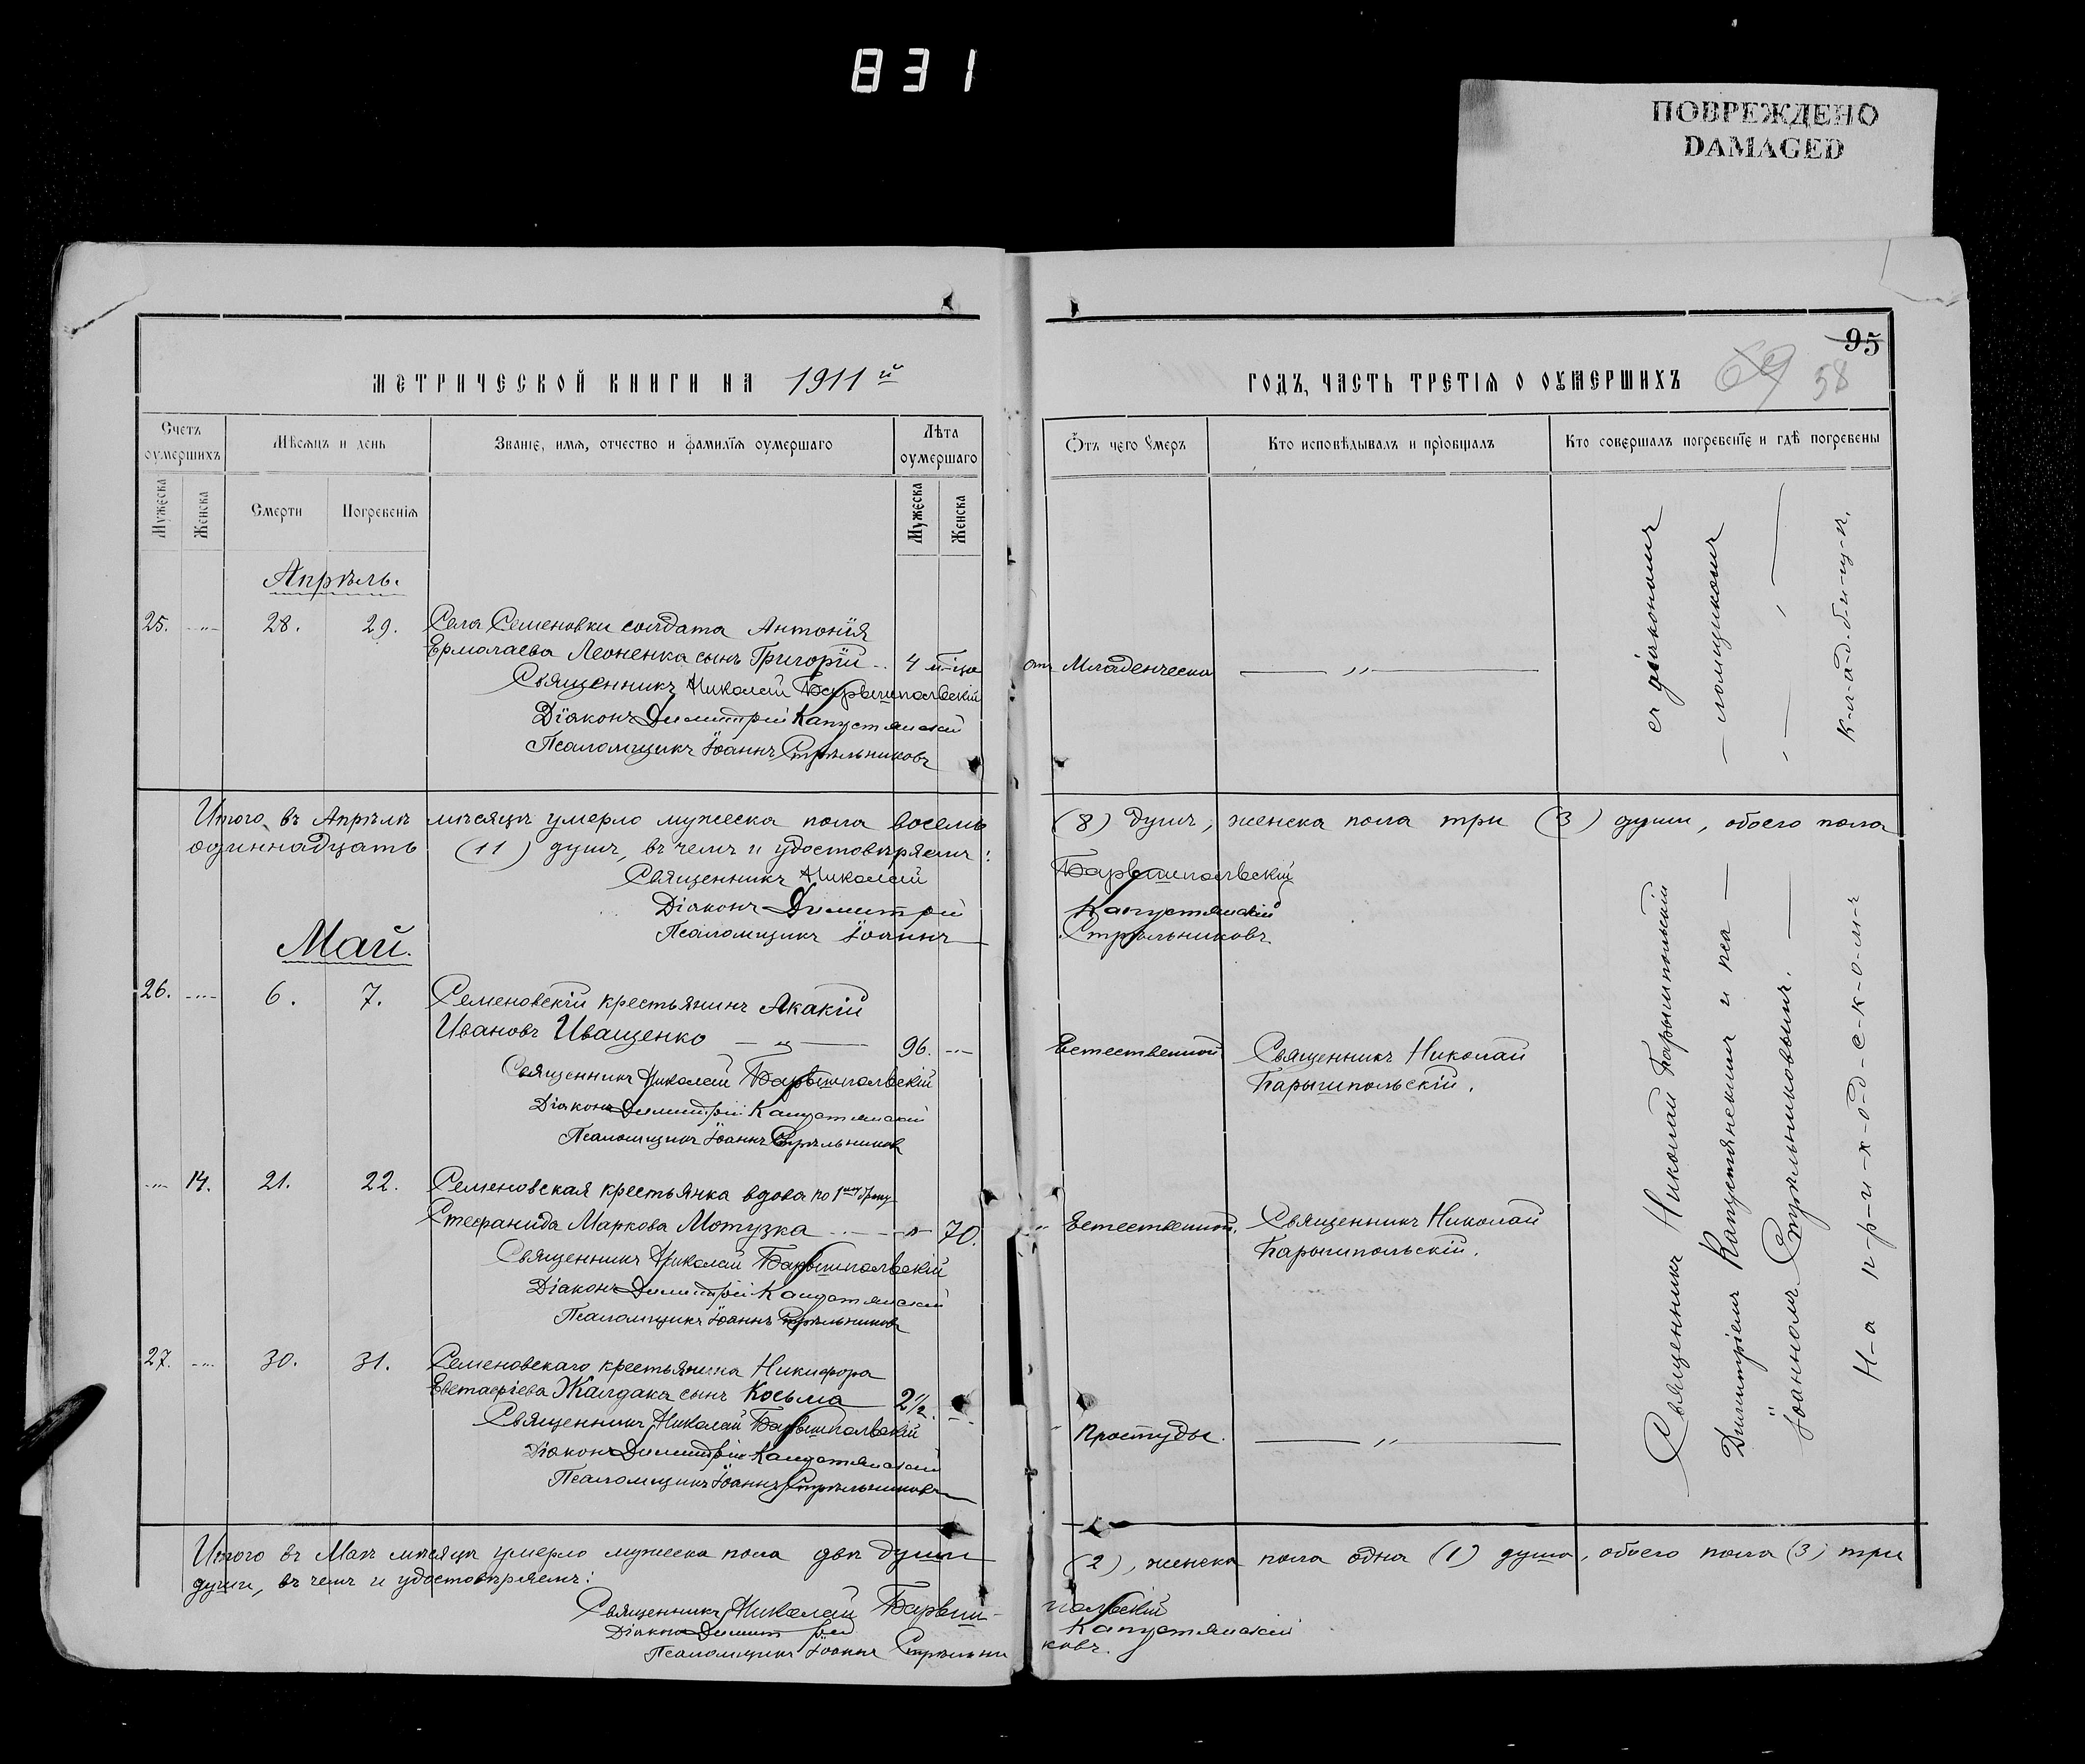 831
ПОВРЕЖДЕНО
DAMAGED
95
МЕТРИЧЕСКОЙ КНИГИ НА 1911й
ГОДЪ, ЧАСТЬ ТРЕТІЯ О ОУМЕРШИХЪ
69 58
Счетъ оумершихъ
Мѣсяцъ и день
Званіе, имя, отчество и фамилїя оумершаго
Лѣта оумершаго
Мужеска
Женска
Смерти
Погребенія
Мужеска
Женска
Отъ чего Умеръ
Кто исповѣдывалъ и прїобщалъ
Кто совершалъ погребенїе и гдѣ погребены
Апрѣль.
25. -"- 28. 29. Села Семеновки солдата Антонія
Ермолаева Леоненка сынъ Григорій 4 м-ца
отъ Младенческа — " —
Священникъ Николай Барышпольскій
Діаконъ Димитрій Капустянскій
Псаломщикъ Іоаннъ Стрѣльниковъ
съ діакономъ
— ломщикомъ
к-л-а-д-б-и-щ-ѣ.
Итого въ Апрѣлѣ мѣсяцѣ умерло мужеска пола восемь (8) душъ, женска пола три (3) души, обоего пола
одиннадцать (11) душъ, въ чемъ и удостовѣряемъ:
Священникъ Николай Барышпольскій
Діаконъ Димитрій Капустянскій
Псаломщикъ Іоаннъ Стрѣльниковъ.
Май.
26. -"- 6. 7. Семеновскій крестьянинъ Акакій
Ивановъ Иващенко — " — 96. -"-
Естественной Священникъ Николай
Барышпольскій.
Священникъ Николай Барышпольскій
Діаконъ Димитрій Капустянскій
Псаломщикъ Іоаннъ Стрѣльниковъ
-"- 14. 21. 22. Семеновская крестьянка вдова по 1му браку
Стефанида Маркова Мотузка -"- 70.
" Естественной. Священникъ Николай
Барышпольскій.
Священникъ Николай Барышпольскій
Діаконъ Димитрій Капустянскій
Псаломщикъ Іоаннъ Стрѣльниковъ
27. -"- 30. 31. Семеновскаго крестьянина Никифора
Евстафіева Жалдака сынъ Косьма 2½. -"-
Простуды. — " —
Священникъ Николай Барышпольскій
Діаконъ Димитрій Капустянскій
Псаломщикъ Іоаннъ Стрѣльниковъ
Священникъ Николай Барышпольскій
Димитріемъ Капустянскимъ и пса —
Іоанномъ Стрѣльниковымъ. —
Н-а п-р-и-х-о-д-с-к-о-м-ъ
Итого въ Маѣ мѣсяцѣ умерло мужеска пола двѣ души (2), женска пола одна (1) душа, обоего пола (3) три
души, въ чемъ и удостовѣряемъ:
Священникъ Николай Барышпольскій
Діаконъ Димитрій Капустянскій
Псаломщикъ Іоаннъ Стрѣльниковъ.